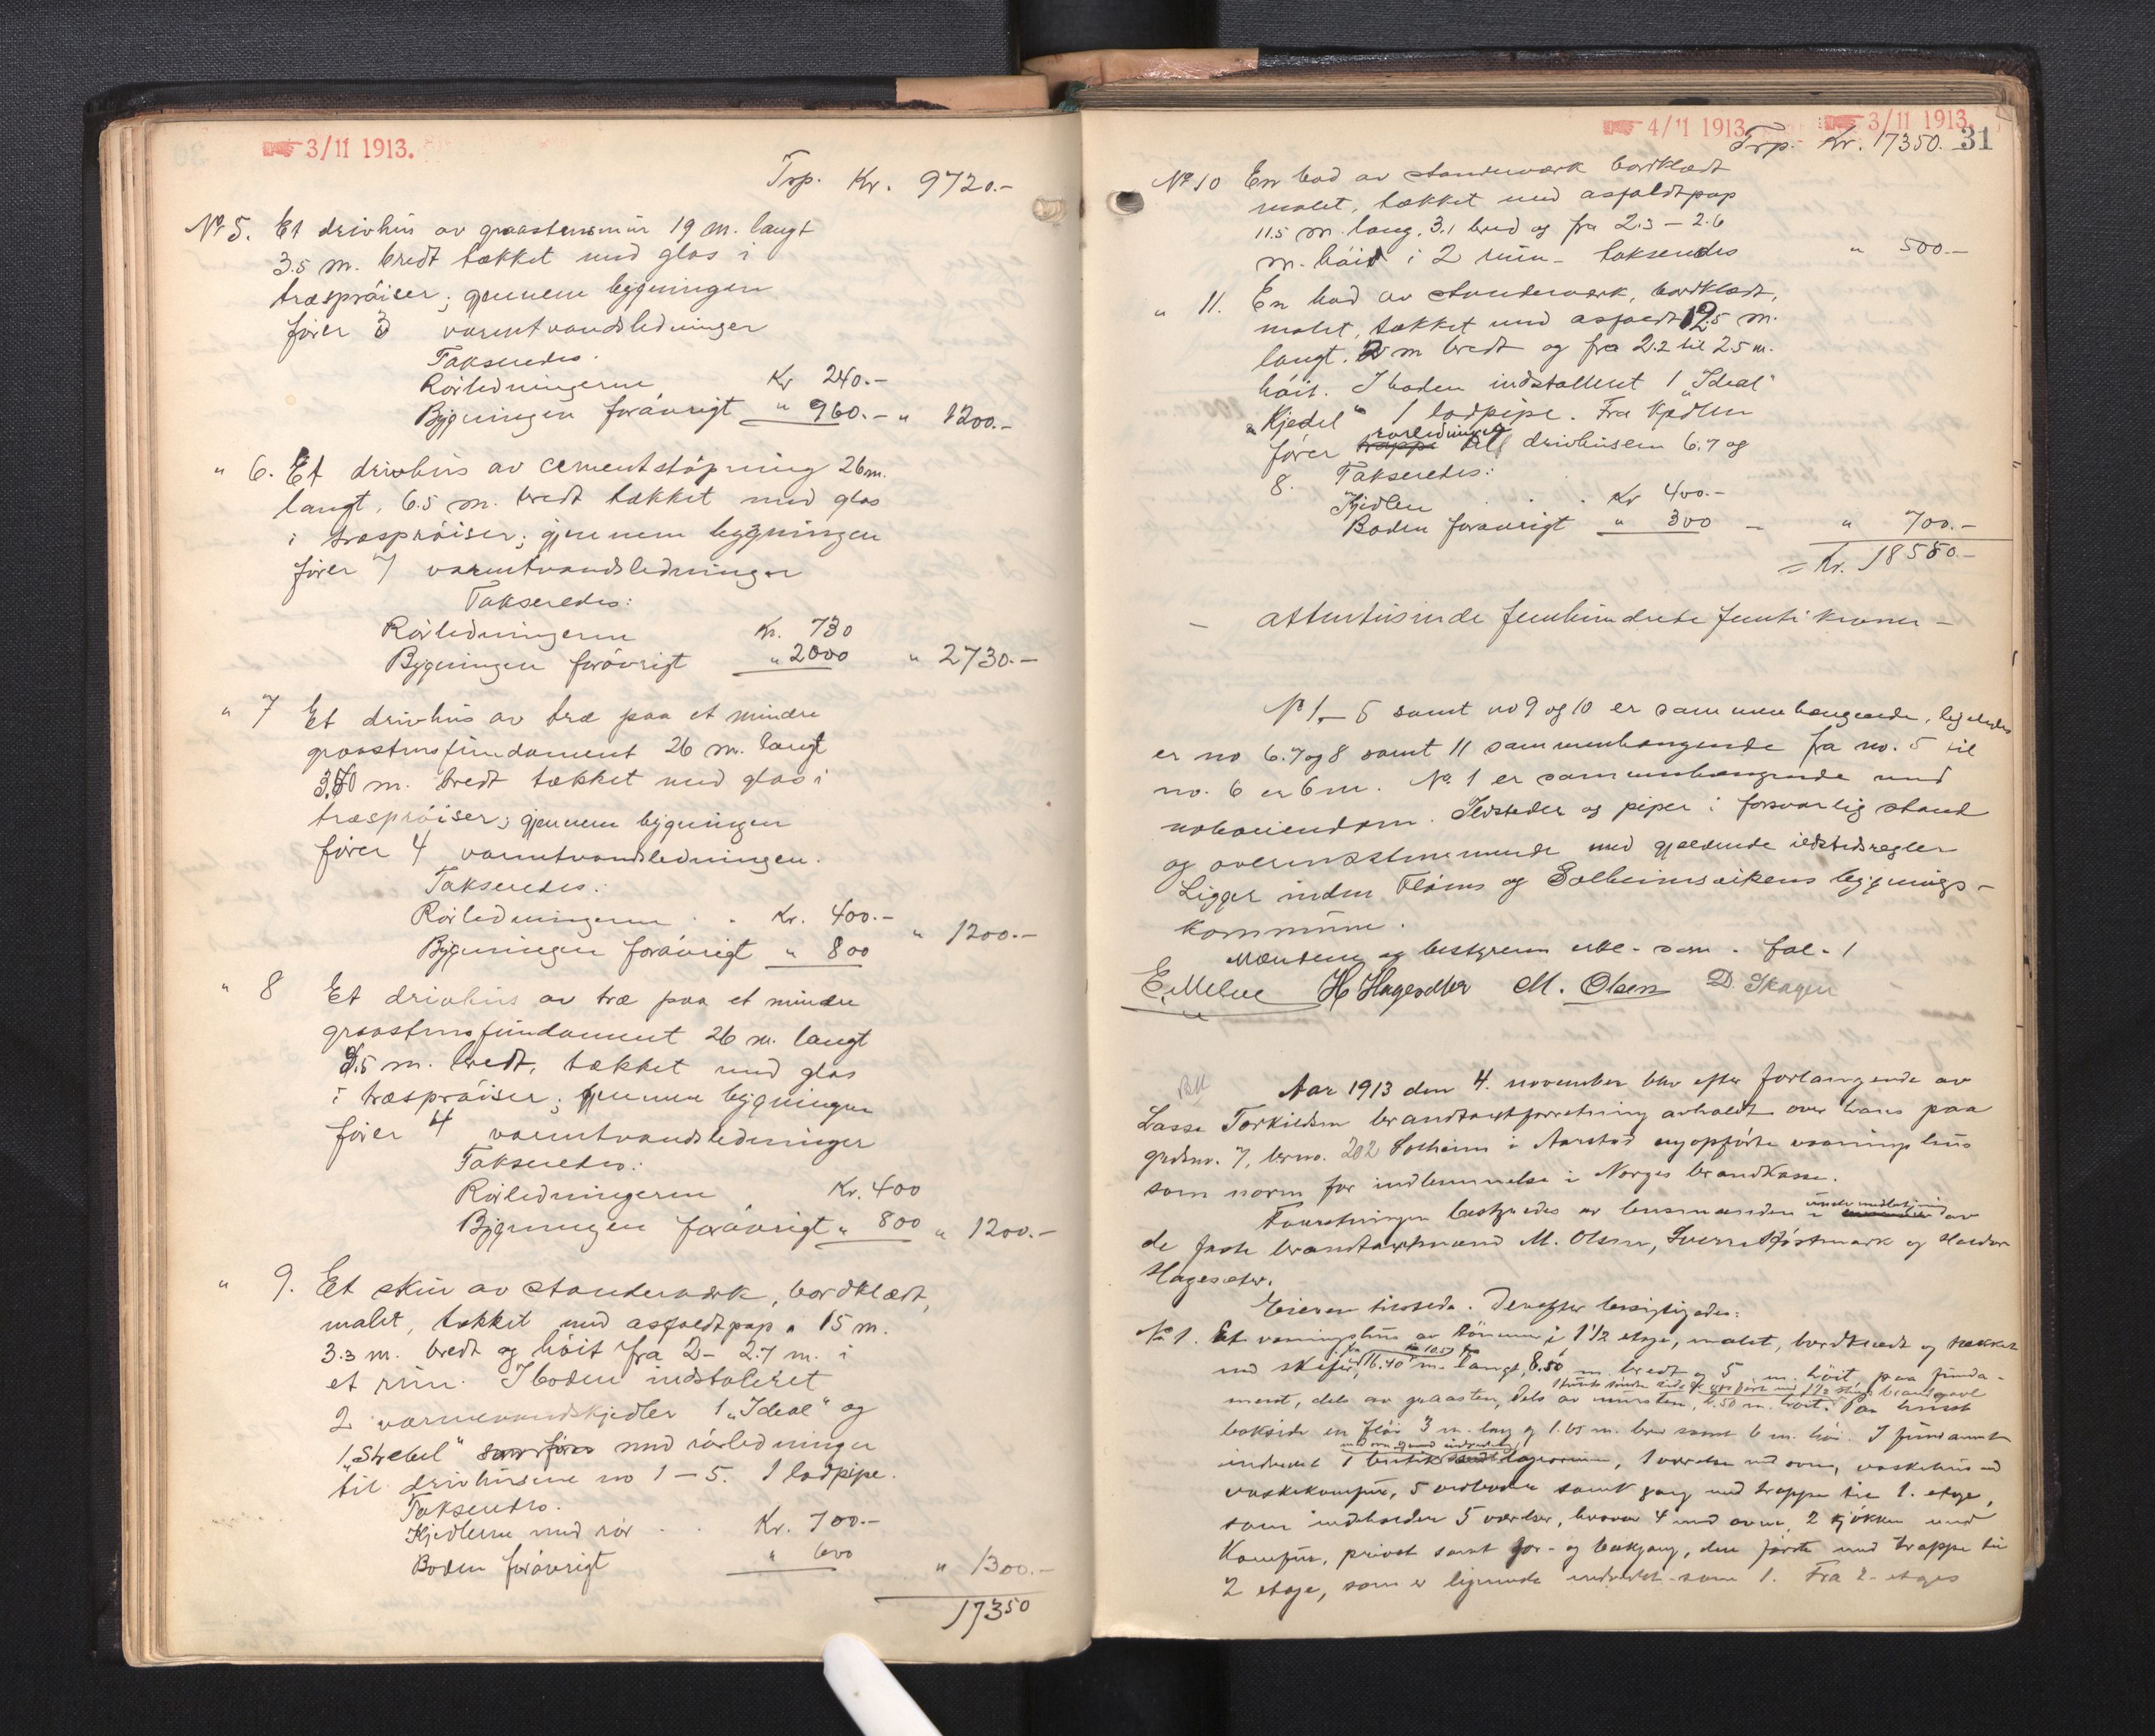 3/11 1913.
Trp. Kr. 9720.-
No 5. Et drivhus av graastensmur 19 m. langt
3.5 m. bredt tækket med glas i
træsprøiser; gjennem bygningen
fører 3 varmtvandsledninger
Takseredes.
Rørledningerne Kr 240.-
Bygningen forøvrigt " 960.- " 1200.-
" 6. Et drivhus av cementstøpning 26 m.
langt, 6.5 m. bredt tækket med glas
i træsprøiser; gjennem bygningen
fører 7 varmtvandsledninger
Takseredes:
Rørledningerne Kr. 730
Bygningen forøvrigt " 2000 " 2730.-
" 7 Et drivhus av træ paa et mindre
graastensfundament 26 m. langt
m. bredt tækket med glas i
træsprøiser; gjennem bygningen
fører 4 varmtvandsledningen.
Takseredes:
Rørledningerne . . Kr. 400.-
Bygningen forøvrigt " 800 " 1200.-
" 8 Et drivhus av træ paa et mindre
graastensfundament 26 m. langt
3.5 m. bredt, tækket med glas
i træsprøiser; gjennem bygningen
fører 4 varmtvandsledninger
Takseredes:
Rørledningerne Kr. 400
Bygningen forøvrigt " 800 " 1200.-
" 9. Et skur av standerværk, bordklædt,
malet, tækket med asfaldtpap. 15 m.
3.3 m. bredt og høit fra 2 - 2.7 m. i
et rum. I boden indstaleret
2 varmevandskjedler 1 „Ideal" og
1 „Strebel" som fører med rørledninger
til drivhusene no 1 - 5. 1 lodpipe.
Takseredes.
Kjedlerne med rør . . Kr. 700.-
Boden forøvrigt " 600 " 1300.-
17350
4/11 1913. 3/11 1913.
Trp. Kr. 17350. 31
No 10 En bod av standerværk bordklædt
malet, tækket med asfaldtpap
11.5 m. lang, 3.1 bred og fra 2.3 - 2.6
m. høid i 2 rum - takseredes " 500.-
" 11. En bod av standerværk, bordklædt,
malet, tækket med asfaldt 12.5 m.
langt. 2 m bredt og fra 2.2 til 2.5 m.
høit. I boden indstalleret 1 „Ideal"
„Kjedel" 1 lodpipe. Fra kjedlen
rørledninger
fører til drivhusene 6.7 og
8. Takseredes:
Kjedlen . . . Kr 400.-
Boden forøvrigt " 300 - " 700.-
= Kr. 18550.-
- attentusinde femhundrede femti kroner -
No 1 - 5 samt no 9 og 10 er sammenhængende, ligeledes
er no 6.7 og 8 samt 11 sammenhængende fra no. 5 til
no. 6 er 6 m. No. 1 er sammenhængende med
naboeiendom. Ildsteder og piper i forsvarlig stand
og overensstemmende med gjældende ildstedsregler
Ligger inden Fløens og Solheimsvikens bygnings-
kommune.
Mændene og bestyreren som fol. 1
E. Melve H Hagesæter M. Olsen D. Skagen
Aar 1913 den 4. november blev efter forlangende av
Lasse Torkildsen brandtaxtforretning avholdt over hans paa
grdsno. 7, brno. 202 Solheim i Aarstad nyopførte vaaningshus
som norm for indlemmelse i Norges brandkasse.
under medvirkning
Forretningen bestyredes av lensmanden av
de faste brandtaxtmænd M. Olsen, Sverre og Halvdor
Hagesæter.
Eieren tilstede. Derefter besigtigedes:
No 1. Et vaaningshus av tømmer i 1 1/2 etage, malet, bordklædt og tækket
med skifer, 16.40 m. langt, 8.50 m. bredt og 5 m. høit, paa funda-
ment, dels av graasten, dels av mursten, 2.50 m. høit. Paa husets
bakside en fløi 3 m. lang og 1.65 m. bred samt 6 m. høi. I fundamentet
indredet 1 butik lagerrum, 1 værelse med ovn, vaskehus med
vaskekomfur, 5 vedboder samt gang med trappe til 1. etage,
som indeholder 5 værelser, hvorav 4 med ovne, 2 kjøkken med
Komfur, privet samt for- og bakgang, den første med trappe til
2 etage, som er lignende indredet som 1. Fra 2. etages